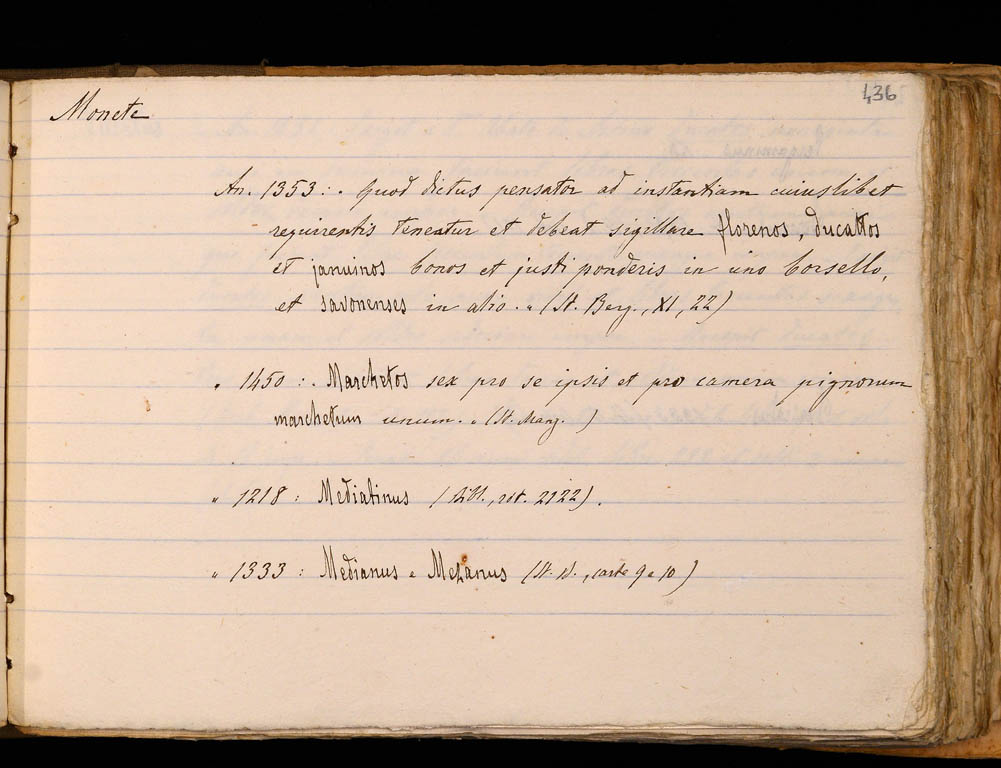 436
Monete
An. 1353: „ Quod dictus pensator ad instantiam cuiuslibet
requirentis teneatur et debeat sigillare florenos, ducattos
et januinos bonos et justi ponderis in uno borsello,
et savonenses in alio. „ (St. Berg., XI, 22)
„ 1450 : „ Marchetos sex pro se ipsis et pro camera pignorum
marchetum unum. „ (St. )
„ 1218 : Mediatinus ( , 2122).
„ 1333 : Medianus e Mezanus (St. d., carte 9 e 10)